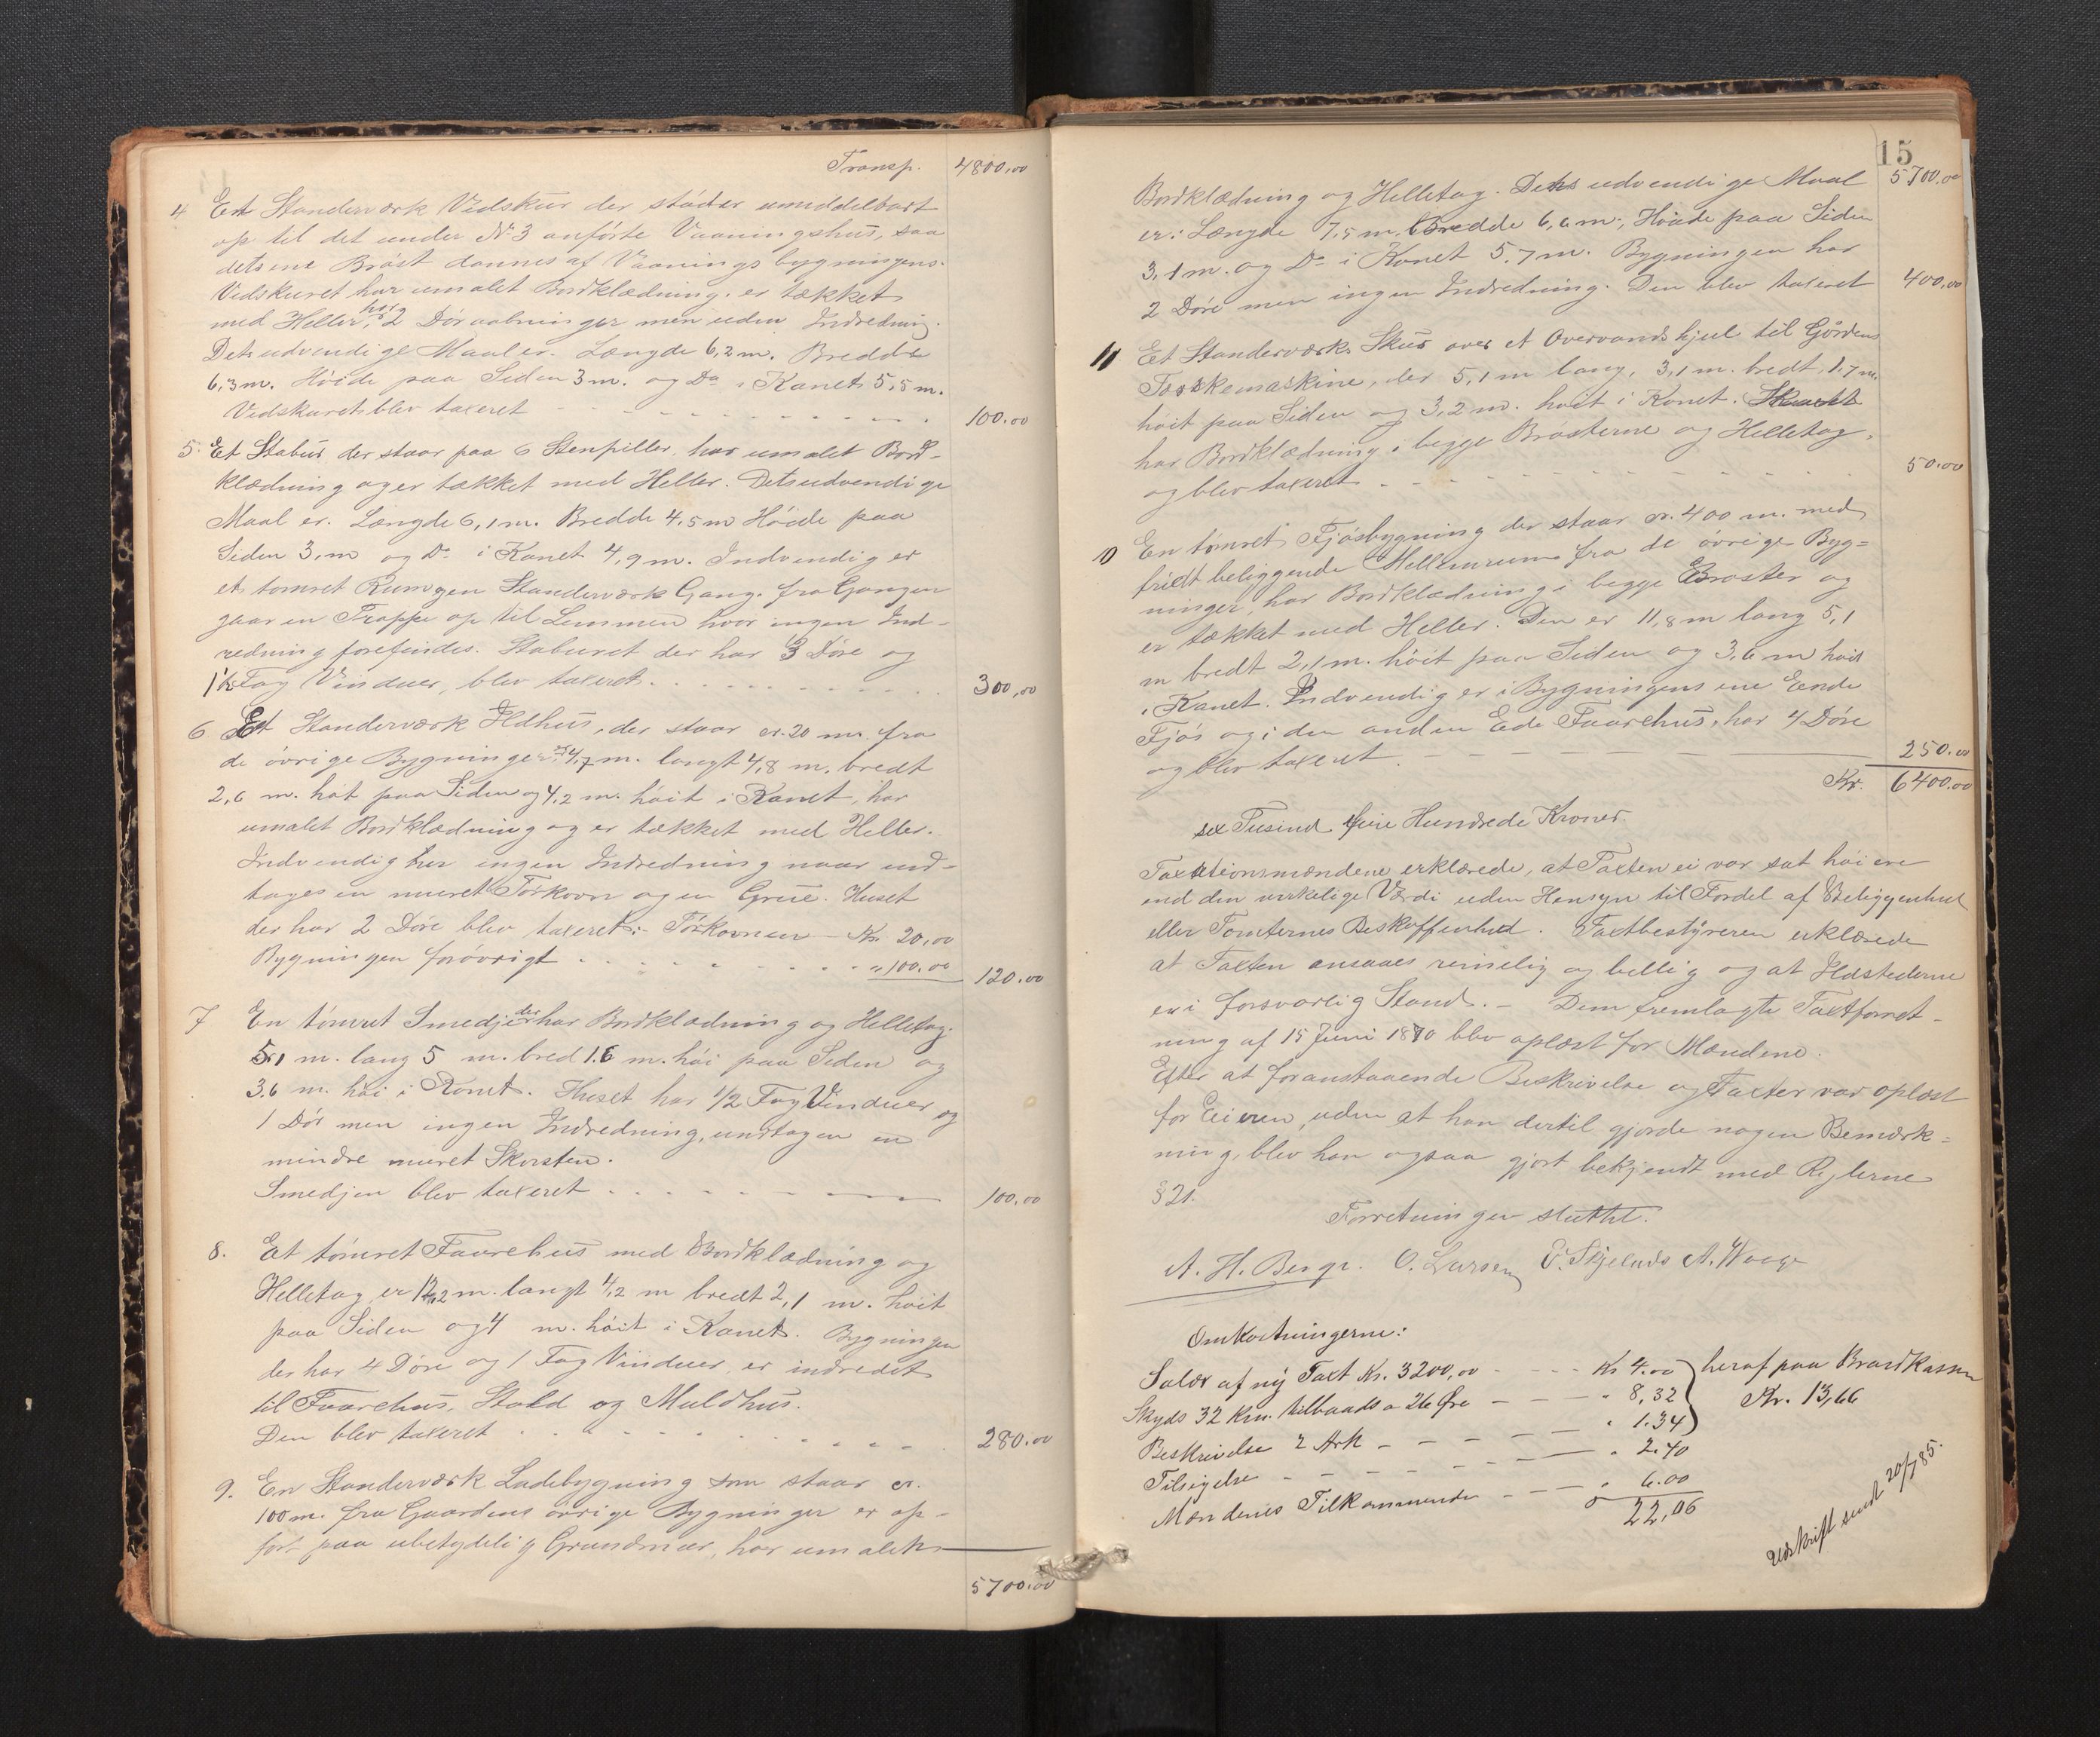 Transp. 4800,00
4 Et Standerværk Vedskur der støder umiddelbart
op til det under No 3 anførte Vaaningshus, saa
dets ene Brøst dannes af Vaaningsbygningens.
Vedskuret har umalet Bordklædning, er tækket
med Heller, har 2 Døraabninger men uden Indredning.
Dets udvendige Maal er. Længde 6,2 m. Bredde
6,3 m. Höide paa Siden 3 m. og Do i Kanet 5,5 m.
Vedskuret blev taxeret 100.00
5. Et Stabur der staar paa 6 Stenpiller, har umalet Bord-
klædning og er tækket med Heller. Dets udvendige
Maal er. Længde 6,1 m. Bredde 4,5 m Höide paa
Siden 3,m og Do i Kanet 4,9 m. Indvendig er
et tømret Rum og en Standerværk Gang. fra Gangen
gaar en Trappe op til Lemmen hvor ingen Ind-
redning forefindes. Staburet der har 3 Döre og
1 1/2 Fag Vinduer, blev taxeret 300,00
6 Et Standerværk Ildhus, der staar cr. 20 m. fra
de övrige Bygninger er 4,7 m. langt 4,8 m. bredt
2,6 m. høit paa Siden og 4,2 m. höit i Kanet, har
umalet Bordklædning og er tækket med Heller.
Indvendig har ingen Indredning naar und-
tages en muret Törkovn og en Grue. Huset
der har 2 Döre blev taxeret:- Törkovnen - Kr. 20,00
Bygningen forövrigt " 100.00 120.00
7 En tömret Smedje der har Bordklædning og Helletag.
5,1 m. lang 5 m. bred 1.6 m. höi paa Siden og
3.6 m. höi i Kanet. Huset har 1/2 Fag Vinduer og
1 Dör men ingen Indredning, undtagen en
mindre muret Skorsten.
Smedjen blev taxeret 100.00
8. Et tömret Faarehus med Bordklædning og
Helletag er 12,2 m. langt 4,2 m bredt 2,1 m. höit
paa Siden og 4 m. höit i Kanet. Bygningen
der har 4 Döre og 1 Fag Vinduer er indredet
til Faarehus, Stald og Muldhus.
Den blev taxeret 280.00
9. En Standerværk Ladebygning som staar cr.
100 m. fra Gaardens övrige Bygninger er op-
fört paa ubetydelig Grundmur, har umalet
5700.00
15
Bordklædning og Helletag. Dens udvendige Maal 5700.00
er: Længde 7,5 m. Bredde 6,6 m; Höide paa Siden
3,1 m. og Do i Kanet 5.7 m. Bygningen har
2 Döre men ingen Indredning. Den blev taxeret 400.00
11 Et Standerværks Skur over et Overvandshjul til Gårdens
Tærskemaskine, der 5,1 m lang, 3,1 m. bredt, 1,7 m.
höit paa Siden og 3,2 m. höit i Kanet. Skuret
har Bordklædning i begge Brösterne og Helletag,
og blev taxeret 50.00
10 En tömret Fjösbygning der staar cr. 400 m. med
fridt beliggende Mellemrum fra de övrige Byg=
ninger, har Bordklædning i begge Bröster og
er tækket med Heller. Den er 11,8 m lang 5,1
m bredt 2,1 m. höit paa Siden og 3,6 m höit
i Kanet. Indvendig er i Bygningens ene Ende
Fjös og i den anden Ede Faarehus, har 4 Döre
og blev taxeret. 250.00
Kr. 6400.00
sex Tusind fire Hundrede Kroner.
Taxationsmændene erklærede, at Taxten ei var sat höiere
end den virkelige Værdi uden Hensyn til Fordel af Beliggenhed
eller Tomternes Beskaffenhed. Taxtbestyreren erklærede
at Taxten ansaaes rimelig og billig og at Ildstederne
er i forsvarlig Stand. - Dem fremlagte Taxtforret-
ning af 15 Juni 1870 blev oplæst for Mændene.
Efter at foranstaaende Beskrivelse og Taxter var oplæst
for Eieren, uden at han dertil gjorde nogen Bemærk=
ning, blev han ogsaa gjort bekjendt med Reglerne
§ 21.
Forretningen sluttet.
A. H. Berge. O. Larsen A. Waage
Omkostningerne:
Salær af ny Taxt Kr. 3200,00 Kr 4.00 heraf paa Brandkassen
Skyds 32 Km. tilbaads a 26 Öre " 8,32 Kr. 13,66
Beskrivelse 2 Ark " 1.34
Tilsigelse " 2.40
Mændenes Tilkommende " 6.00
22,06
Udskrift sendt 20/7 85.